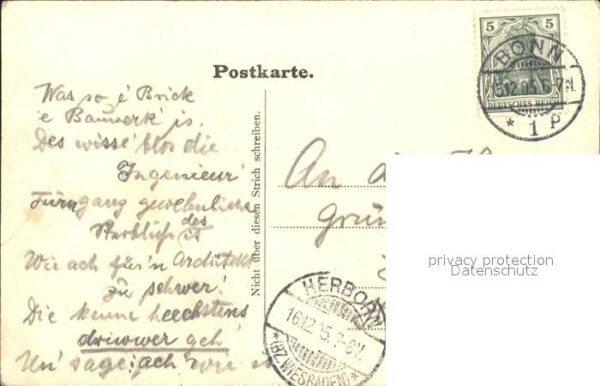 Postkarte.
Was so é Brick
'e Bauwerk is,
Des wisse' blos die
Ingenieur'
Für'n ganz gewehnliche
Sterblich
des is
Wie ach für'n Architekt
zu schwer!
Die kenne heechstens
driwwer geh'
Un' sage: ach wie
Nicht über diesen Strich schreiben.
An
Grün
5
DEUTSCHES REICH
BONN
15.12.05. 6-7N.
* 1 P
HERBORN
16.12.05. 7-8V.
*(BZ. WIESBADEN)*
privacy protection
Datenschutz